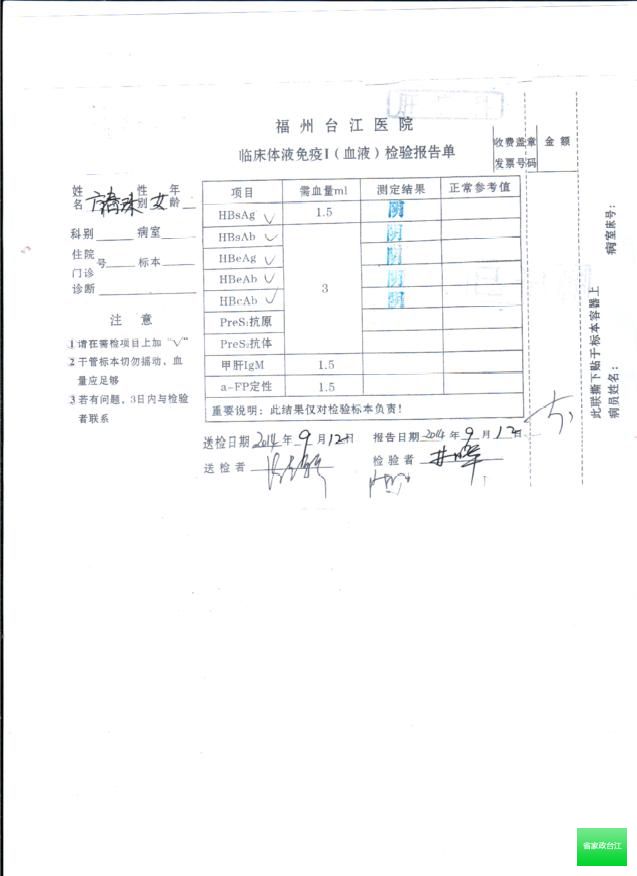 福州台江医院
临床体液免疫I（血液）检验报告单
收费盖章 金额
发票号码
姓名 性别 女 年龄
科别 病室
住院门诊 号 标本
诊断
注意
1 请在需检项目上加“√”
2 干管标本切勿摇动，血量应足够
3 若有问题，3日内与检验者联系
项目 需血量ml 测定结果 正常参考值
HBsAg √ 1.5 阴
HBsAb √ 3 阴
HBeAg √ 阴
HBeAb √ 阴
HBcAb √ 阴
PreS₁抗原
PreS₂抗体
甲肝IgM 1.5
a-FP定性 1.5
重要说明：此结果仅对检验标本负责！
送检日期 2014年9月12日 报告日期 2014年9月12日
送检者 检验者
此联撕下贴于标本容器上
病员姓名： 病室床号：
省家政台江